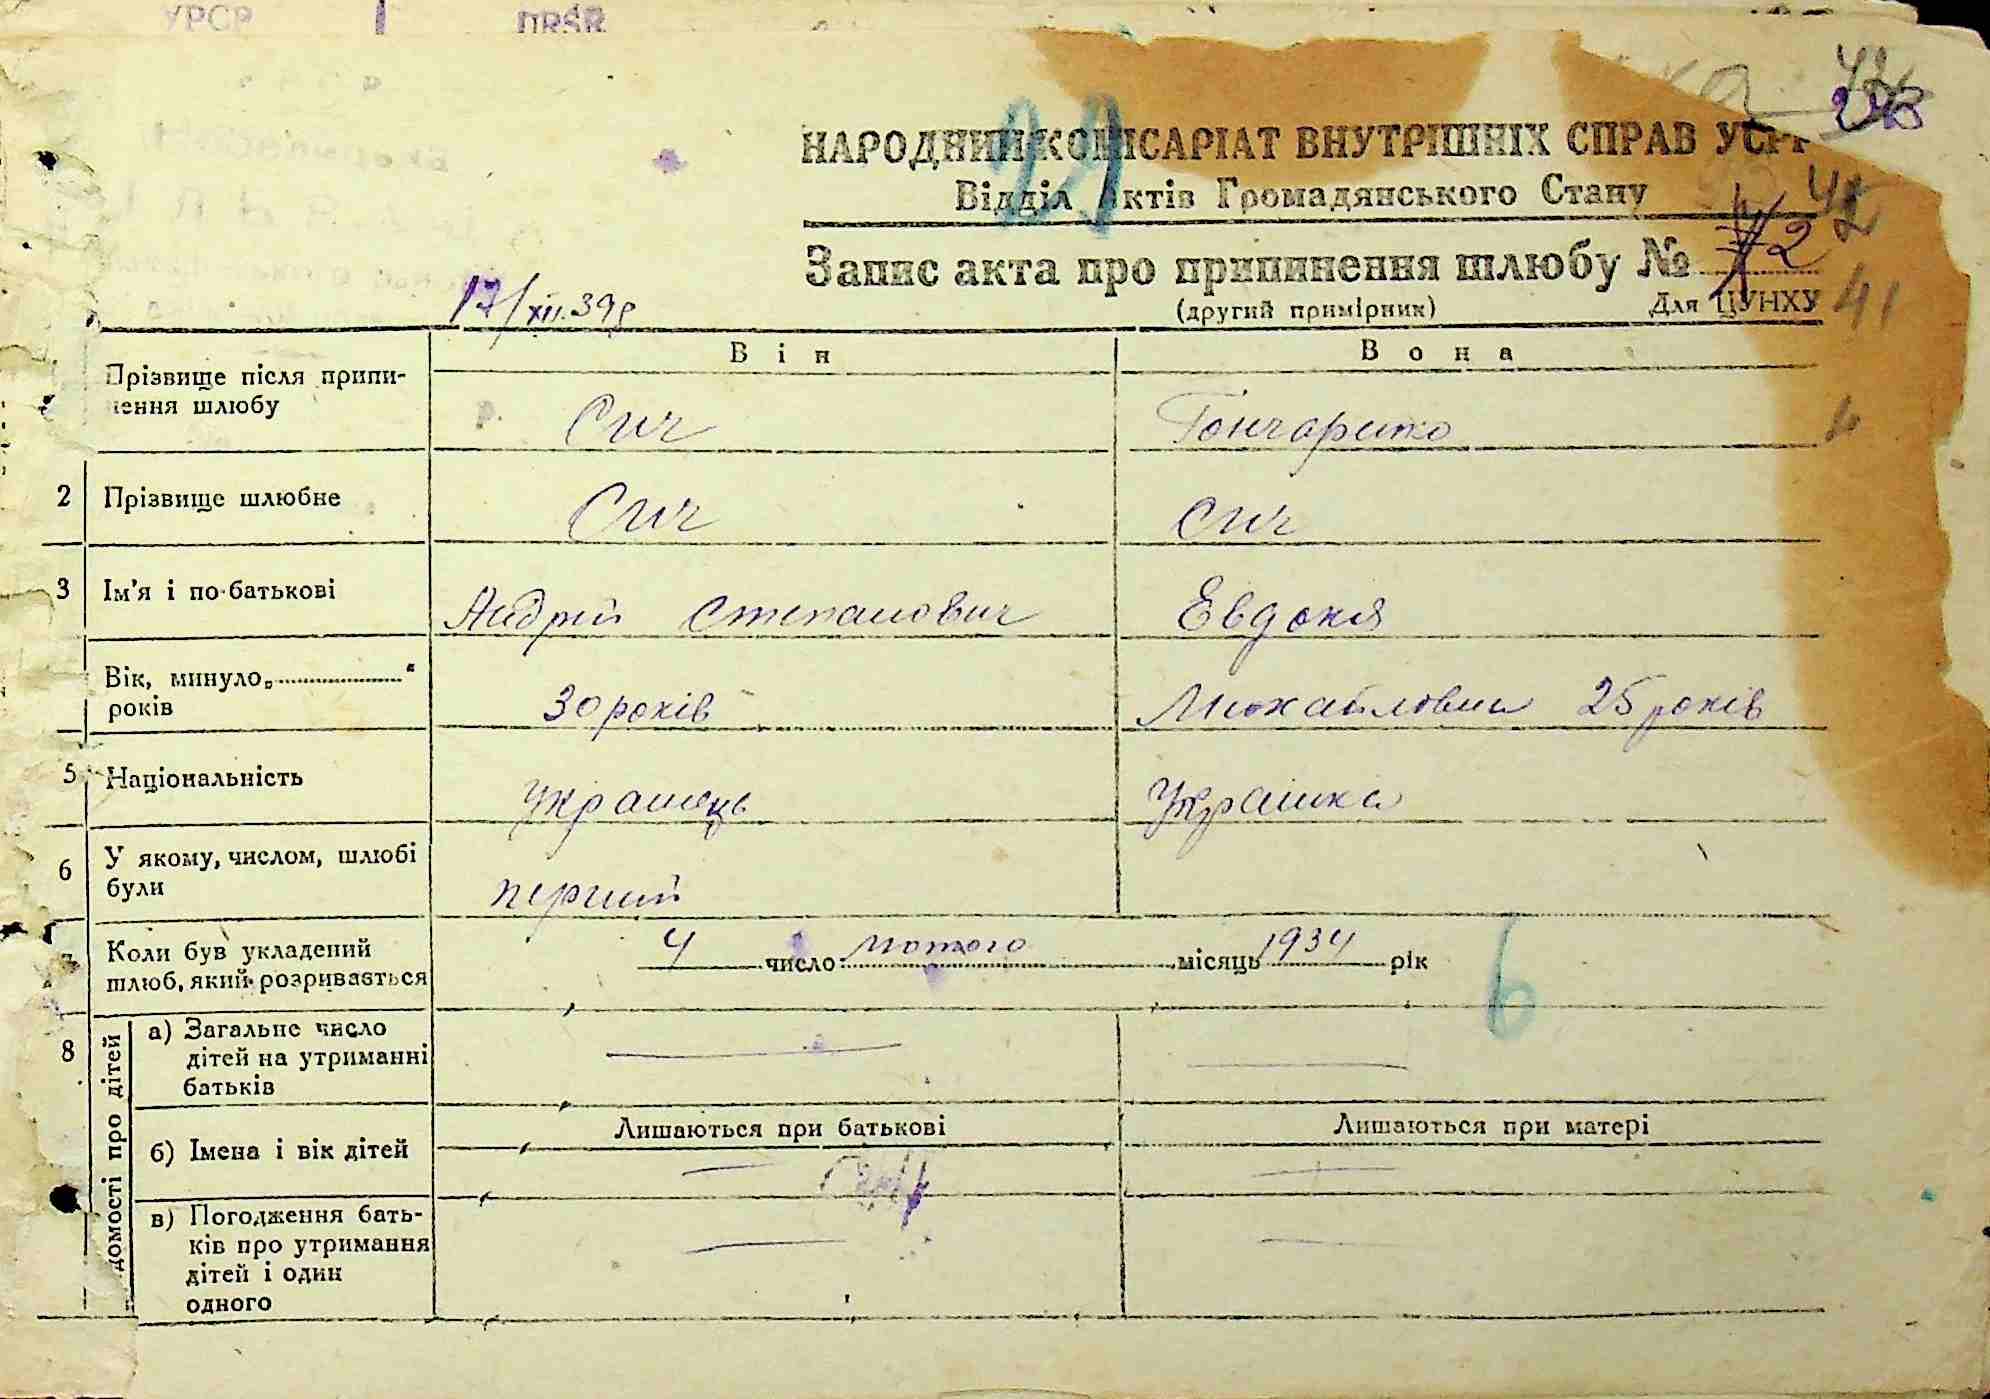 УРСР URSR
248
НАРОДНИЙ КОМІСАРІАТ ВНУТРІШНІХ СПРАВ УСРР
29
Відділ Актів Громадянського Стану
42
Запис акта про припинення шлюбу № 2
17/XII.39р (другий примірник) Для ЦУНХУ 41
Він Вона
Прізвище після припинення шлюбу Сич Гончаренко
2 Прізвище шлюбне Сич Сич
3 Ім'я і по-батькові Андрій Степанович Евдокія
Вік, минуло „ “ років 30 років Михайловна 25 років
5 Національність Українець Українка
6 У якому, числом, шлюбі були перший
7 Коли був укладений шлюб, який розривається 4 число лютого місяць 1934 рік
6
8 домості про дітей
а) Загальне число дітей на утриманні батьків
Лишаються при батькові Лишаються при матері
б) Імена і вік дітей
в) Погодження батьків про утримання дітей і один одного